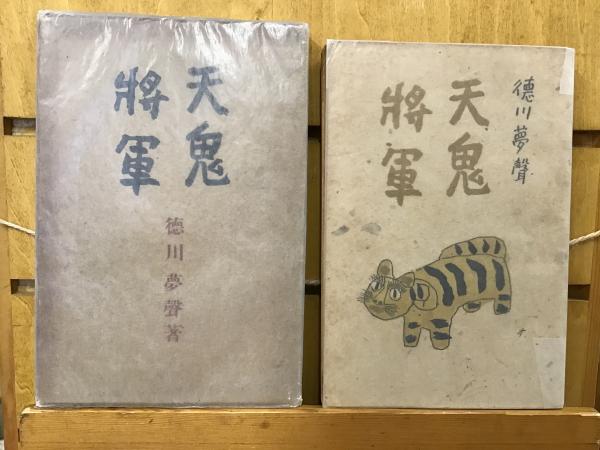 天鬼
將軍
徳川夢聲著
德川夢聲
天鬼
將軍